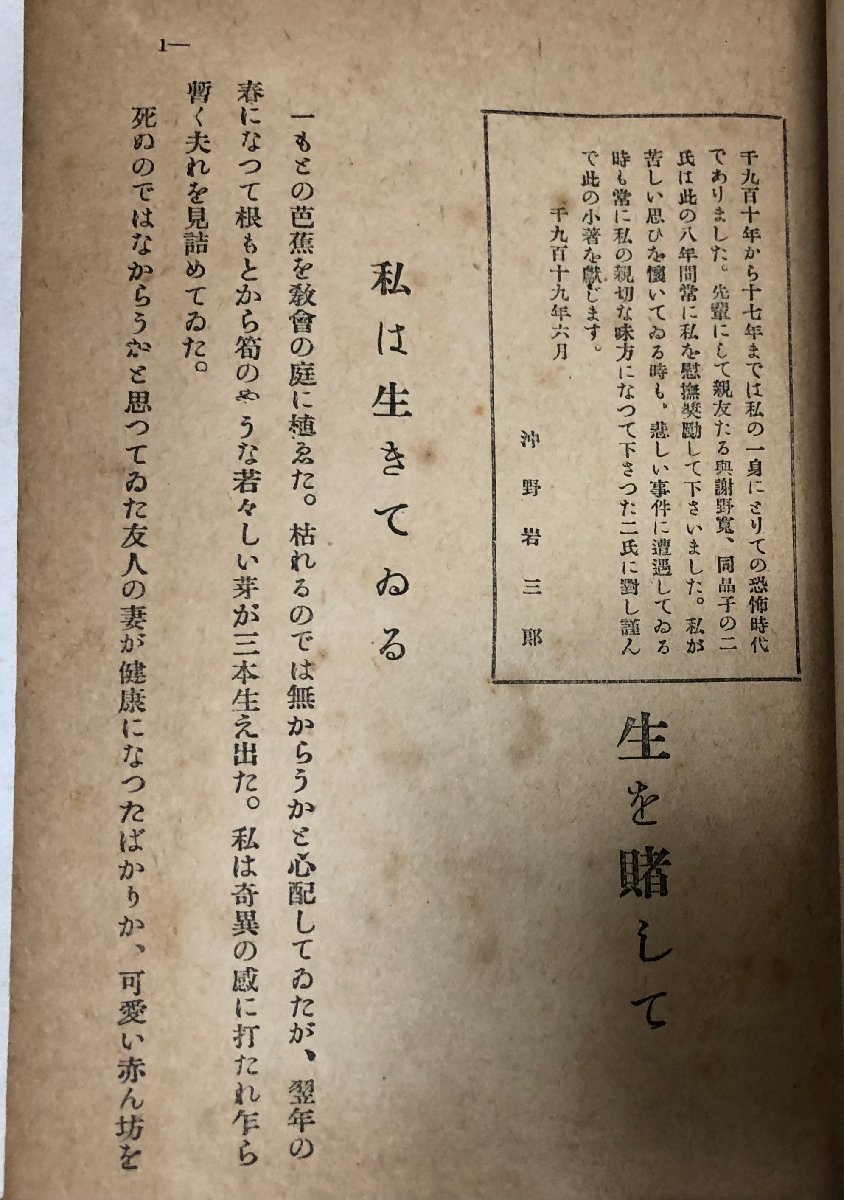 生を賭して
千九百十年から十七年までは私の一身にとりての恐怖時代
でありました。先輩にして親友たる與謝野寬、同晶子の二
氏は此の八年間常に私を慰撫奬勵して下さいました。私が
苦しい思ひを懷いてゐる時も、悲しい事件に遭遇してゐる
時も常に私の親切な味方になつて下さつた二氏に對し謹ん
で此の小著を獻じます。
千九百十九年六月
沖野岩三郎
私は生きてゐる
一もとの芭蕉を敎會の庭に植ゑた。枯れるのでは無からうかと心配してゐたが、翌年の
春になつて根もとから筍のやうな若々しい芽が三本生え出た。私は奇異の感に打たれ乍ら
暫く夫れを見詰めてゐた。
死ぬのではなからうかと思つてゐた友人の妻が健康になつたばかりか、可愛い赤ん坊を
1—